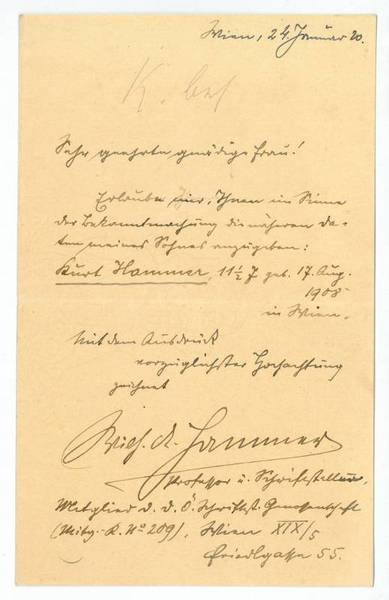 Wien, 24. Januar 20.
K. bes
Sehr geehrte gnädige Frau!
Erlaube mir, Ihnen im Sinne
der Bekanntmachung die näheren Da-
ten meines Sohnes anzugeben:
Kurt Hammer, 11 1/2 J geb. 17. Aug.
1908
in Wien.
Mit dem Ausdruck
vorzüglichster Hochachtung
zeichnet
Wilh. A. Hammer
Professor u. Schriftsteller,
Mitglied d. D. Ö. Schriftst. Genossenschft
(Mitg.-K. No 209), Wien XIX/5
Friedlgasse 55.